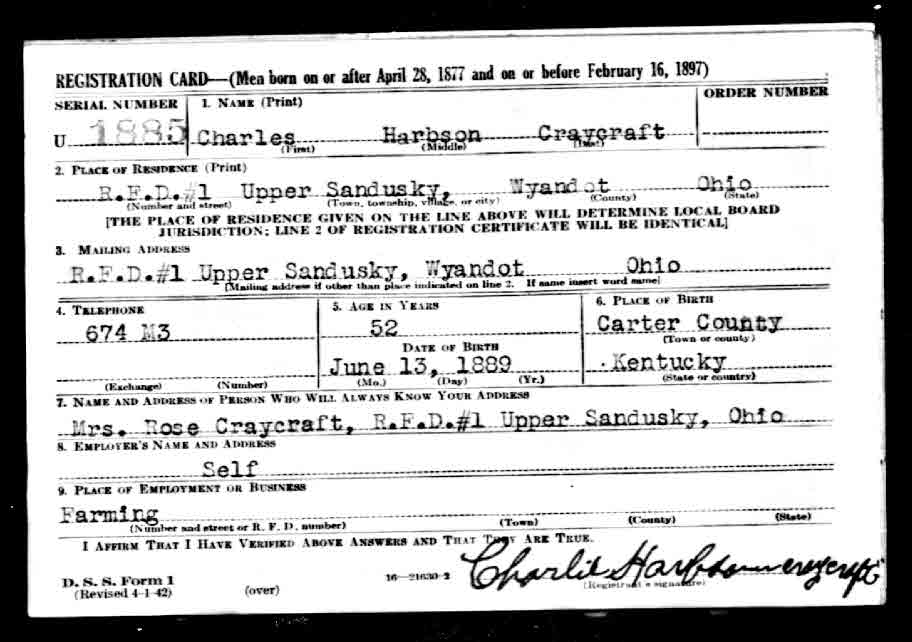 REGISTRATION CARD—(Men born on or after April 28, 1877 and on or before February 16, 1897)
SERIAL NUMBER 1. NAME (Print) ORDER NUMBER
U 1885 Charles Harbson Craycraft
(First) (Middle) (Last)
2. PLACE OF RESIDENCE (Print)
R.F.D.#1 Upper Sandusky, Wyandot Ohio
(Number and street) (Town, township, village, or city) (County) (State)
[THE PLACE OF RESIDENCE GIVEN ON THE LINE ABOVE WILL DETERMINE LOCAL BOARD
JURISDICTION; LINE 2 OF REGISTRATION CERTIFICATE WILL BE IDENTICAL]
3. MAILING ADDRESS
R.F.D.#1 Upper Sandusky, Wyandot Ohio
[Mailing address if other than place indicated on line 2. If same insert word same]
4. TELEPHONE 5. AGE IN YEARS 6. PLACE OF BIRTH
674 M3 52 Carter County
DATE OF BIRTH (Town or county)
June 13, 1889 Kentucky
(Exchange) (Number) (Mo.) (Day) (Yr.) (State or country)
7. NAME AND ADDRESS OF PERSON WHO WILL ALWAYS KNOW YOUR ADDRESS
Mrs. Rose Craycraft, R.F.D.#1 Upper Sandusky, Ohio
8. EMPLOYER'S NAME AND ADDRESS
Self
9. PLACE OF EMPLOYMENT OR BUSINESS
Farming
(Number and street or R. F. D. number) (Town) (County) (State)
I AFFIRM THAT I HAVE VERIFIED ABOVE ANSWERS AND THAT THEY ARE TRUE.
D. S. S. Form 1 16—21630-2 Charlie Harbson craycraft
(Revised 4-1-42) (over) (Registrant's signature)